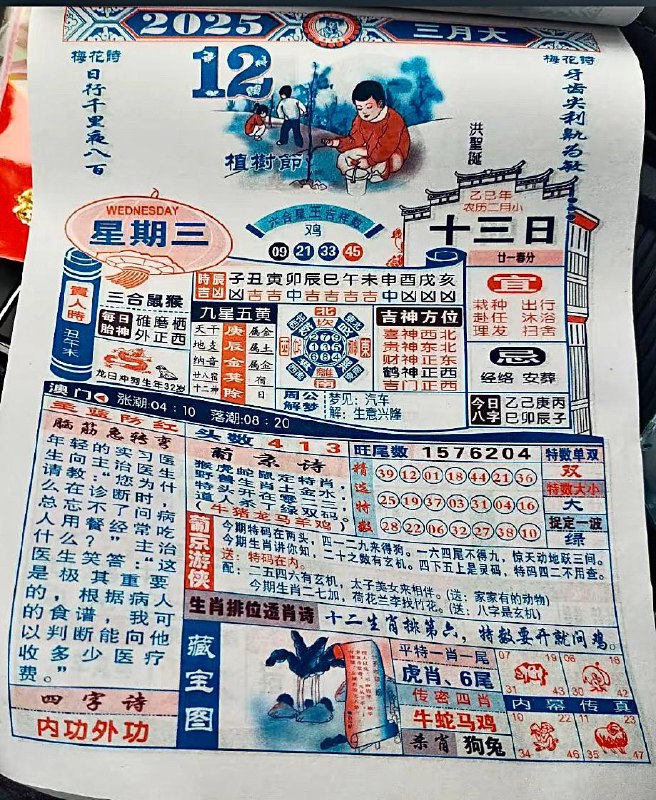 2025
三月大
梅花詩
日行千里夜八百
12
植樹節
洪聖誕
梅花詩
牙齿尖利
乙巳年
农历二月小
十三日
廿一春分
WEDNESDAY
星期三
六合星王吉祥数
鸡
09 21 33 45
貴人時
丑午未
三合鼠猴
每日胎神
碓磨栖
外正西
龙日冲狗生年32岁
時辰吉凶
子丑寅卯辰巳午未申酉戌亥
九星五黄
天干 庚 属金
地支 辰 属土
纳音 金 属金
廿八宿 箕 宿
十二神 除 日
北 坎
離 南
周公解梦
梦见：汽车
解：生意兴隆
吉神方位
喜神西北
贵神东北
财神正东
鹤神正西
吉门正西
宜
栽种 出行
赴任 沐浴
理发 扫舍
忌
经络 安葬
今日八字
乙己庚丙
巳卯辰子
澳门
涨潮:04：10
落潮:08：20
红蓝防红
脑筋急转弯
年轻的实习医
生向主治医生
请教：“您为什
么在诊断时，
总忘不了问病
人用餐经常吃
什么？”主治
医生笑答：“这
是极其重要
的，根据病人
的食谱，我可
以判断能向他
收多少医疗
费。”
四字诗
内功外功
头数 413
葡京诗
猴虎蛇鼠定特肖，
野兽生肖土金水，
特头又开在零二，
道人中了绿双码。
(牛猪龙马羊鸡)
旺尾数 1576204
精选特数
39 12 01 18 44 21 36
25 19 37 03 31 04 16
28 22 06 32 27 38 10
特数单双
双
特数大小
大
捉定一波
绿
葡京游侠
今期特码在两头，四一二九来得狗。一六四尾不得九，惊天动地跃三间。
今期生肖讲你知，二十之数有玄机。四下五上是灵码，特码四二不用查。
送：特码在内。
配：二五四六有玄机，太子美女来相伴。(送：家家有的动物)
今期生肖二七加，荷花兰李找竹花。(送：八字是玄机)
生肖排位透肖诗
十二生肖排第六，特数要开就问鸡。
藏宝图
平特一肖一尾
虎肖、6尾
传密四肖
牛蛇马鸡
杀肖 狗兔
07 19
31 43
06 18
30 42
内幕传真
10 22
34 46
11 23
35 47